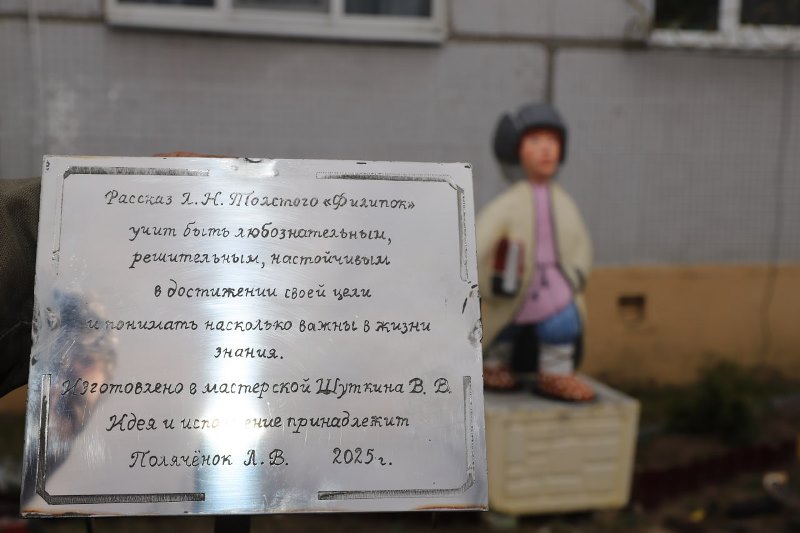 Рассказ Л. Н. Толстого «Филипок»
учит быть любознательным,
решительным, настойчивым
в достижении своей цели
и понимать насколько важны в жизни
знания.
Изготовлено в мастерской Шуткина В. В.
Идея и исполнение принадлежит
Полячёнок Л. В. 2025 г.